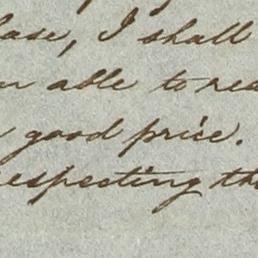 ease, I shall
able to rea
good price.
respecting the